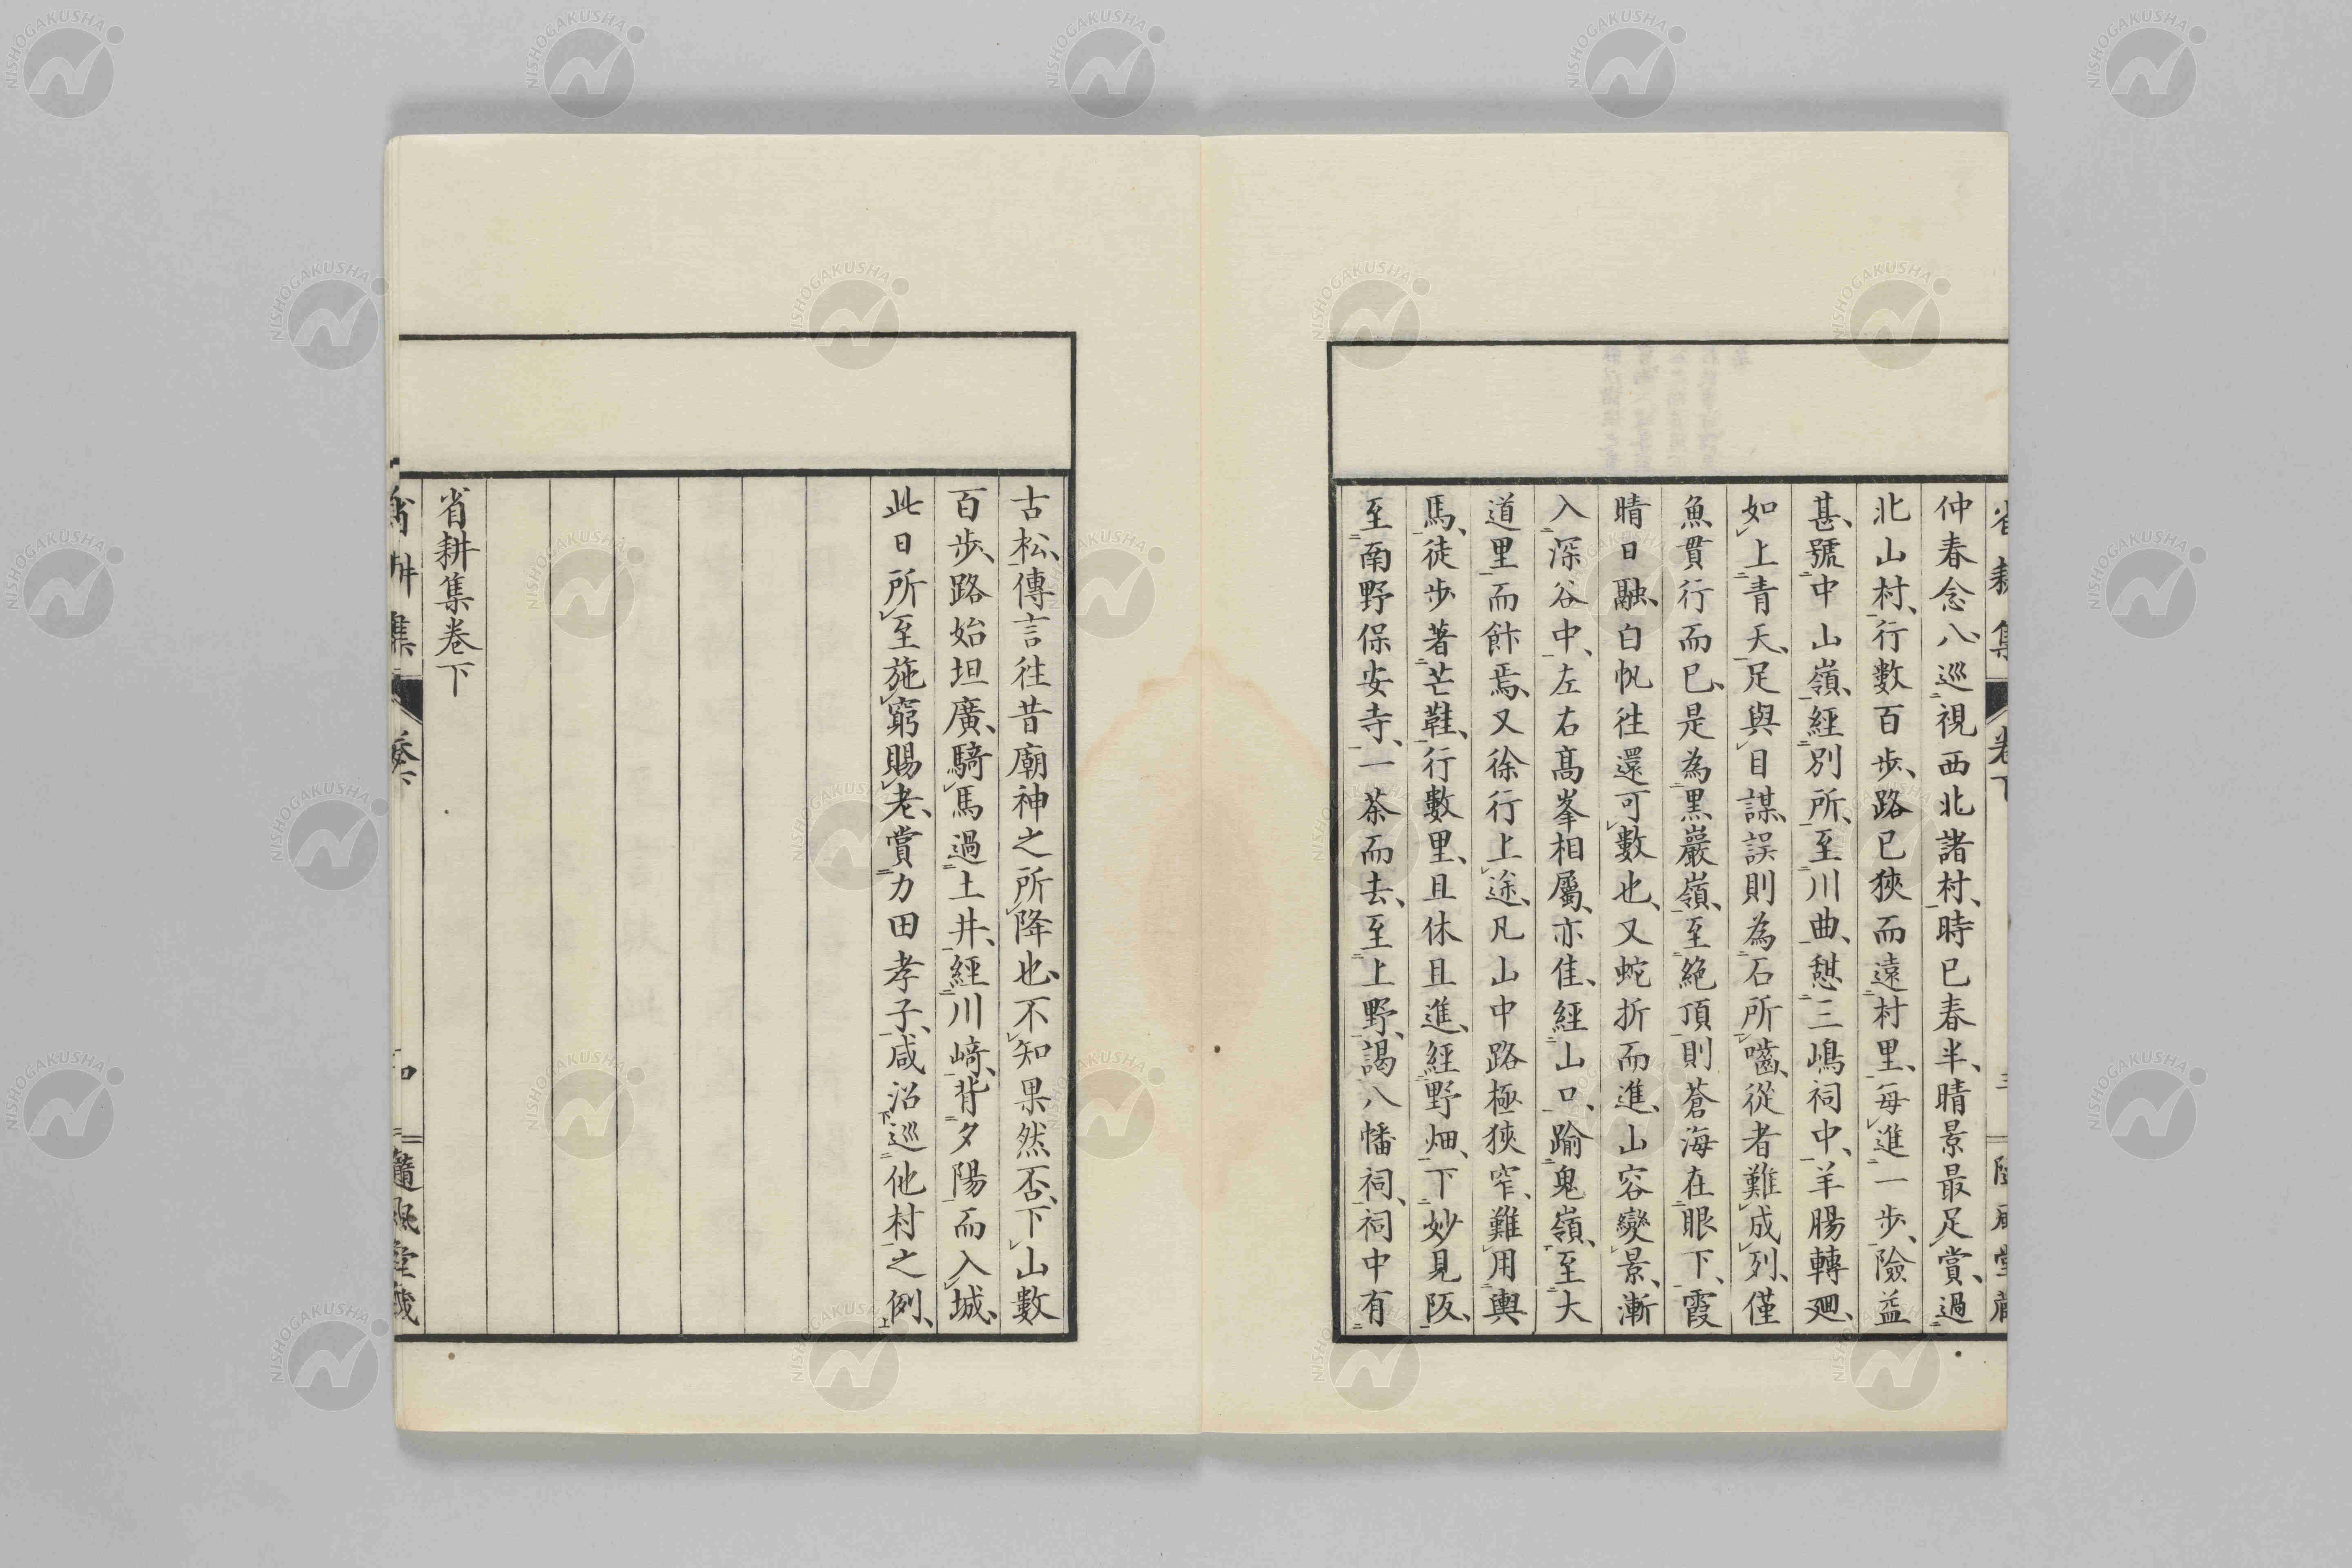 仲春念八、巡視西北諸村、時已春半、晴景最足賞、過
北山村、行數百步、路已狹而遠村里、每進一步、險益
甚、號中山嶺、經別所、至川曲、憩三嶋祠中、羊腸轉廻、
如上青天、足與目謀、誤則為石所嚙、從者難成列、僅
魚貫行而已、是為黑巖嶺、至絕頂則蒼海在眼下、霞
晴日融、白帆往還可數也、又蛇折而進、山容變景、漸
入深谷中、左右高峯相屬、亦佳、經山口、踰鬼嶺、至大
道里而餅焉、又徐行上途、凡山中路極狹窄、難用輿
馬、徒步著芒鞋、行數里、且休且進、經野畑、下妙見阪、
至南野保安寺、一茶而去、至上野、謁八幡祠、祠中有
古松、傳言往昔廟神之所降也、不知果然否、下山數
百步、路始坦廣、騎馬過土井、經川﨑、背夕陽而入城、
此日所至施窮賜老、賞力田孝子、咸沿巡他村之例、
省耕集卷下